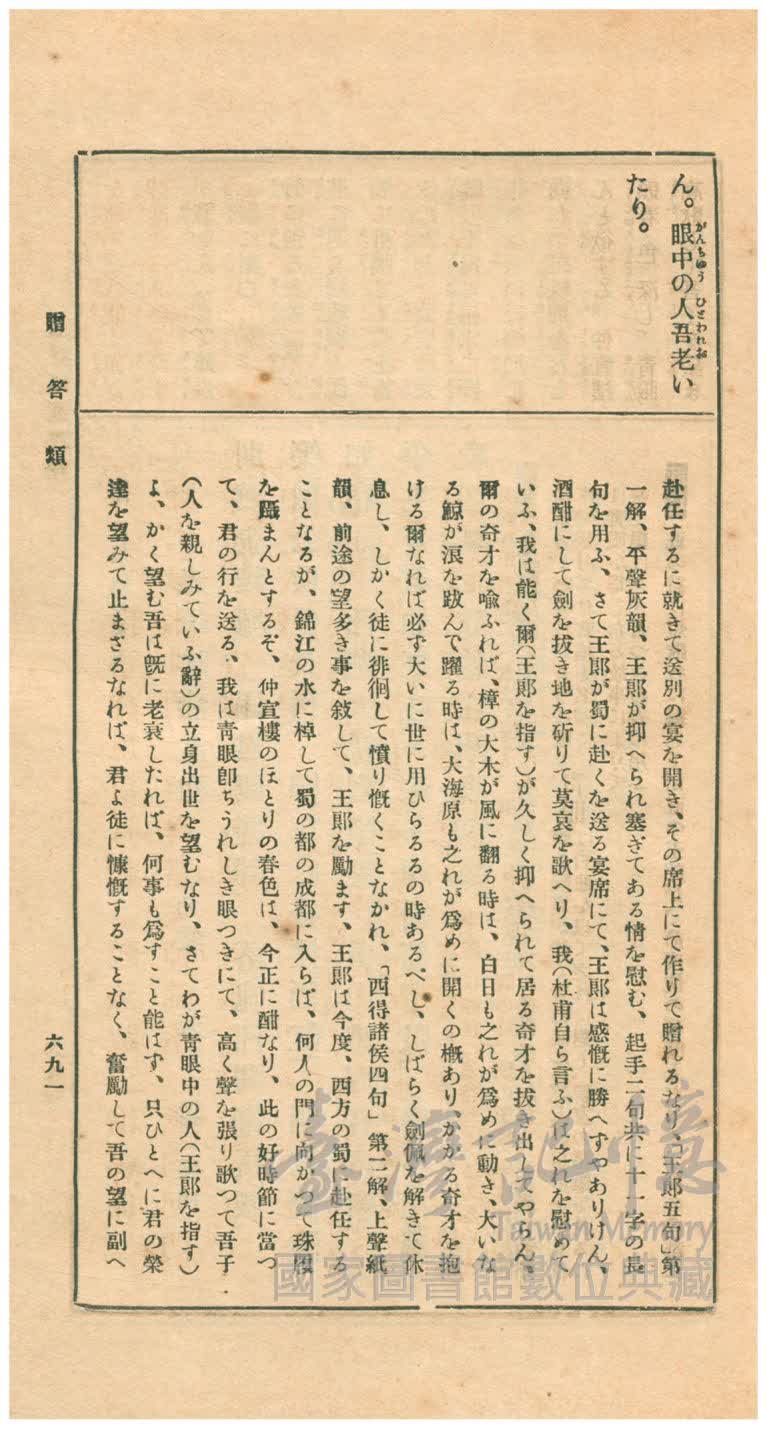 ん。眼中の人吾老い
たり。
赴任するに就きて送別の宴を開き、その席上にて作りて贈れるなり、「王郞五句」第
一解、平聲灰韻、王郞が抑へられ塞ぎてある情を慰む、起手二句共に十一字の長
句を用ふ、さて王郞が蜀に赴くを送る宴席にて、王郞は感慨に勝へずやありけん、
酒酣にして劍を拔き地を斫りて莫哀を歌へり、我(杜甫自ら言ふ)は之れを慰めて
いふ、我は能く爾(王郞を指す)が久しく抑へられて居る奇才を拔き出してやらん、
爾の奇才を喩ふれば、樟の大木が風に翻る時は、白日も之れが爲めに動き、大いな
る鯨が浪を跋んで躍る時は、大海原も之れが爲めに開くの槪あり、かかる奇才を抱
ける爾なれば必ず大いに世に用ひらるるの時あるべし、しばらく劍佩を解きて休
息し、しかく徒に徘徊して憤り慨くことなかれ、「西得諸侯四句」第二解、上聲紙
韻、前途の望多き事を敍して、王郞を勵ます、王郞は今度、西方の蜀に赴任する
ことなるが、錦江の水に棹して蜀の都の成都に入らば、何人の門に向かつて珠履
を躡まんとするぞ、仲宣樓のほとりの春色は、今正に酣なり、此の好時節に當つ
て、君の行を送る、我は靑眼卽ちうれしき眼つきにて、高く聲を張り歌つて吾子
(人を親しみていふ辭)の立身出世を望むなり、さてわが靑眼中の人(王郞を指す)
よ、かく望む吾は旣に老衰したれば、何事も爲すこと能はず、只ひとへに君の榮
達を望みて止まざるなれば、君よ徒に慷慨することなく、奮勵して吾の望に副へ
贈答類
六九一
臺灣記憶
Taiwan Memory
國家圖書館數位典藏